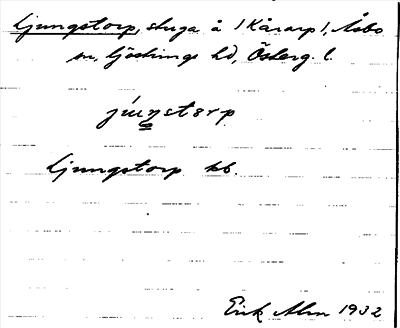 Ljungstorp, stuga å /Kårarp/, Åsbo
sn, Göstrings hd, Österg. l.
júŋstɔrp
Ljungstorp kb.
Erik Alm 1932